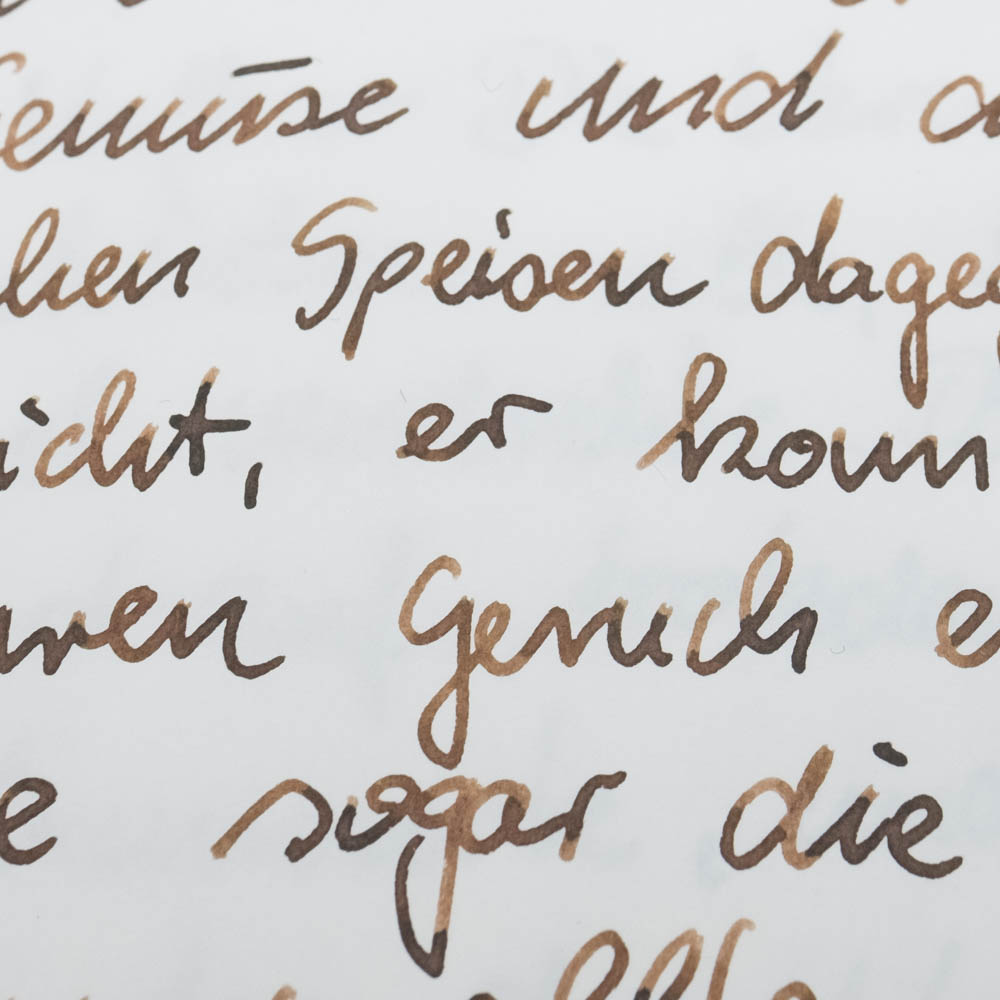 Gemüse und d
hen Speisen dageg
icht, er konn
aren Geruch e
e sogar die